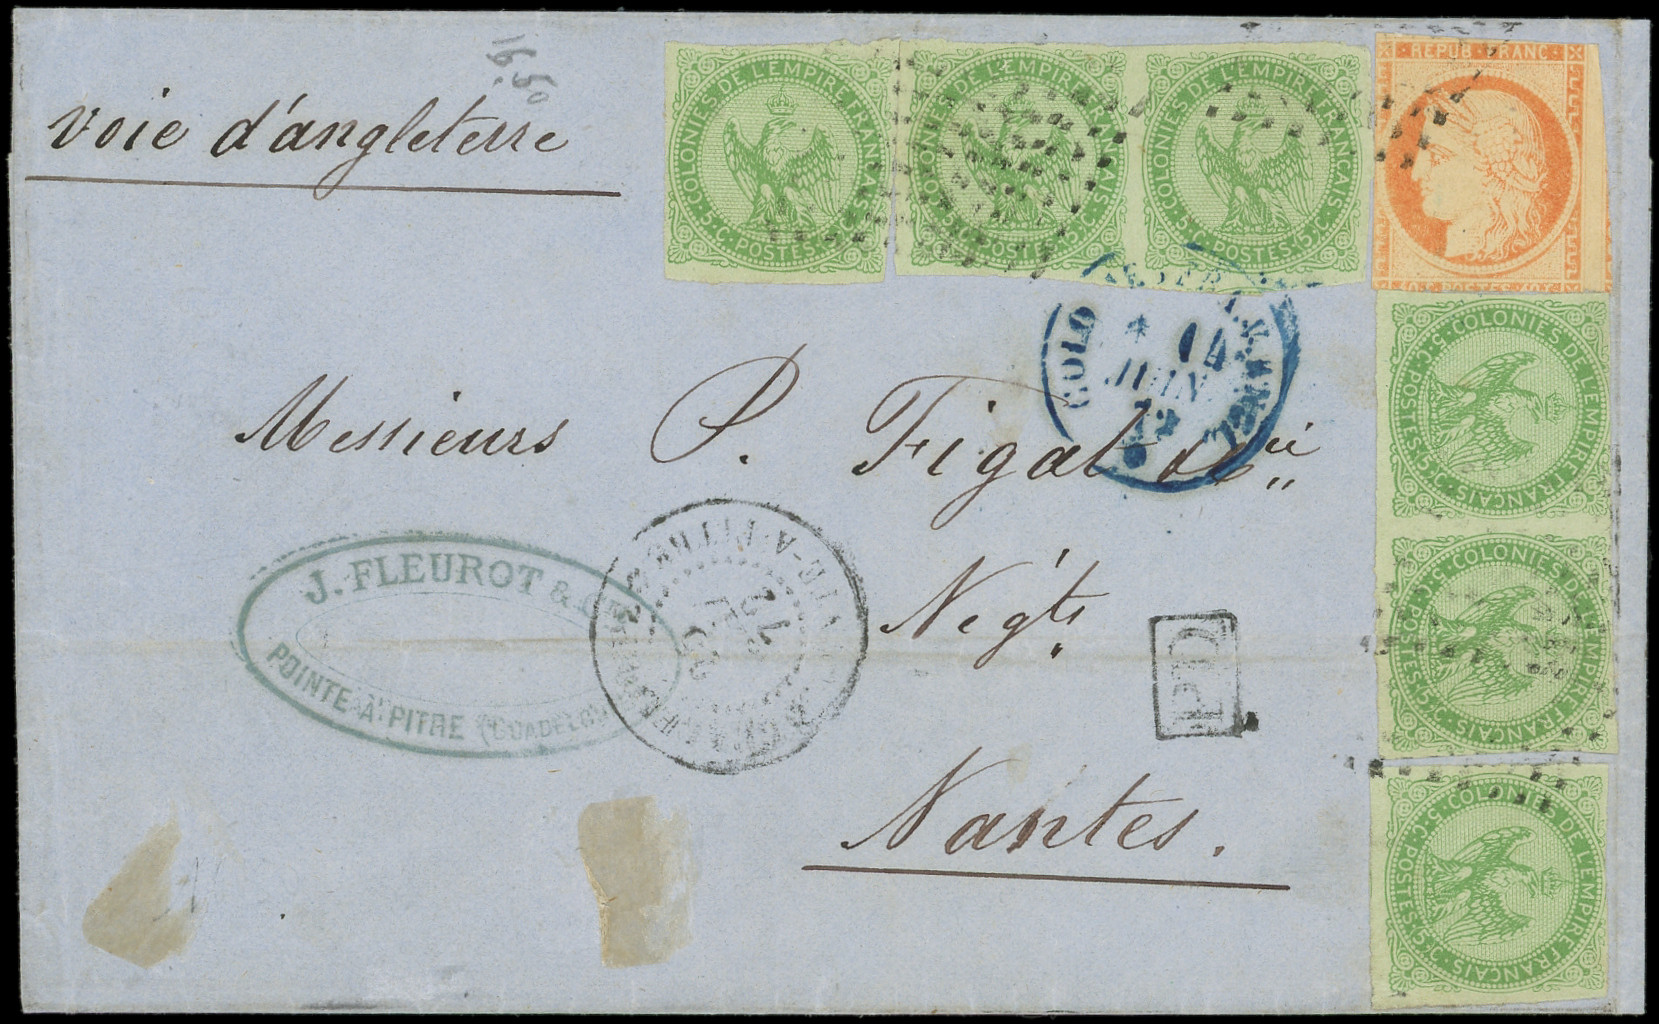 voie d'angleterre
19.50
COLONIES DE L'EMPIRE FRANÇAIS · 5 C. POSTES 5 C.
COLONIES DE L'EMPIRE FRANÇAIS · 5 C. POSTES 5 C.
COLONIES DE L'EMPIRE FRANÇAIS · 5 C. POSTES 5 C.
REPUB · FRANC ·
40 c POSTES 40 c
COLONIES DE L'EMPIRE FRANÇAIS · 5 C. POSTES 5 C.
COLONIES DE L'EMPIRE FRANÇAIS · 5 C. POSTES 5 C.
COLONIES DE L'EMPIRE FRANÇAIS · 5 C. POSTES 5 C.
COL
14
JUIN
72
Messieurs P. Figal & Cie
Négts
Nantes.
J. FLEUROT & Cie
POINTE-À-PITRE (GUADELOU
72
PD